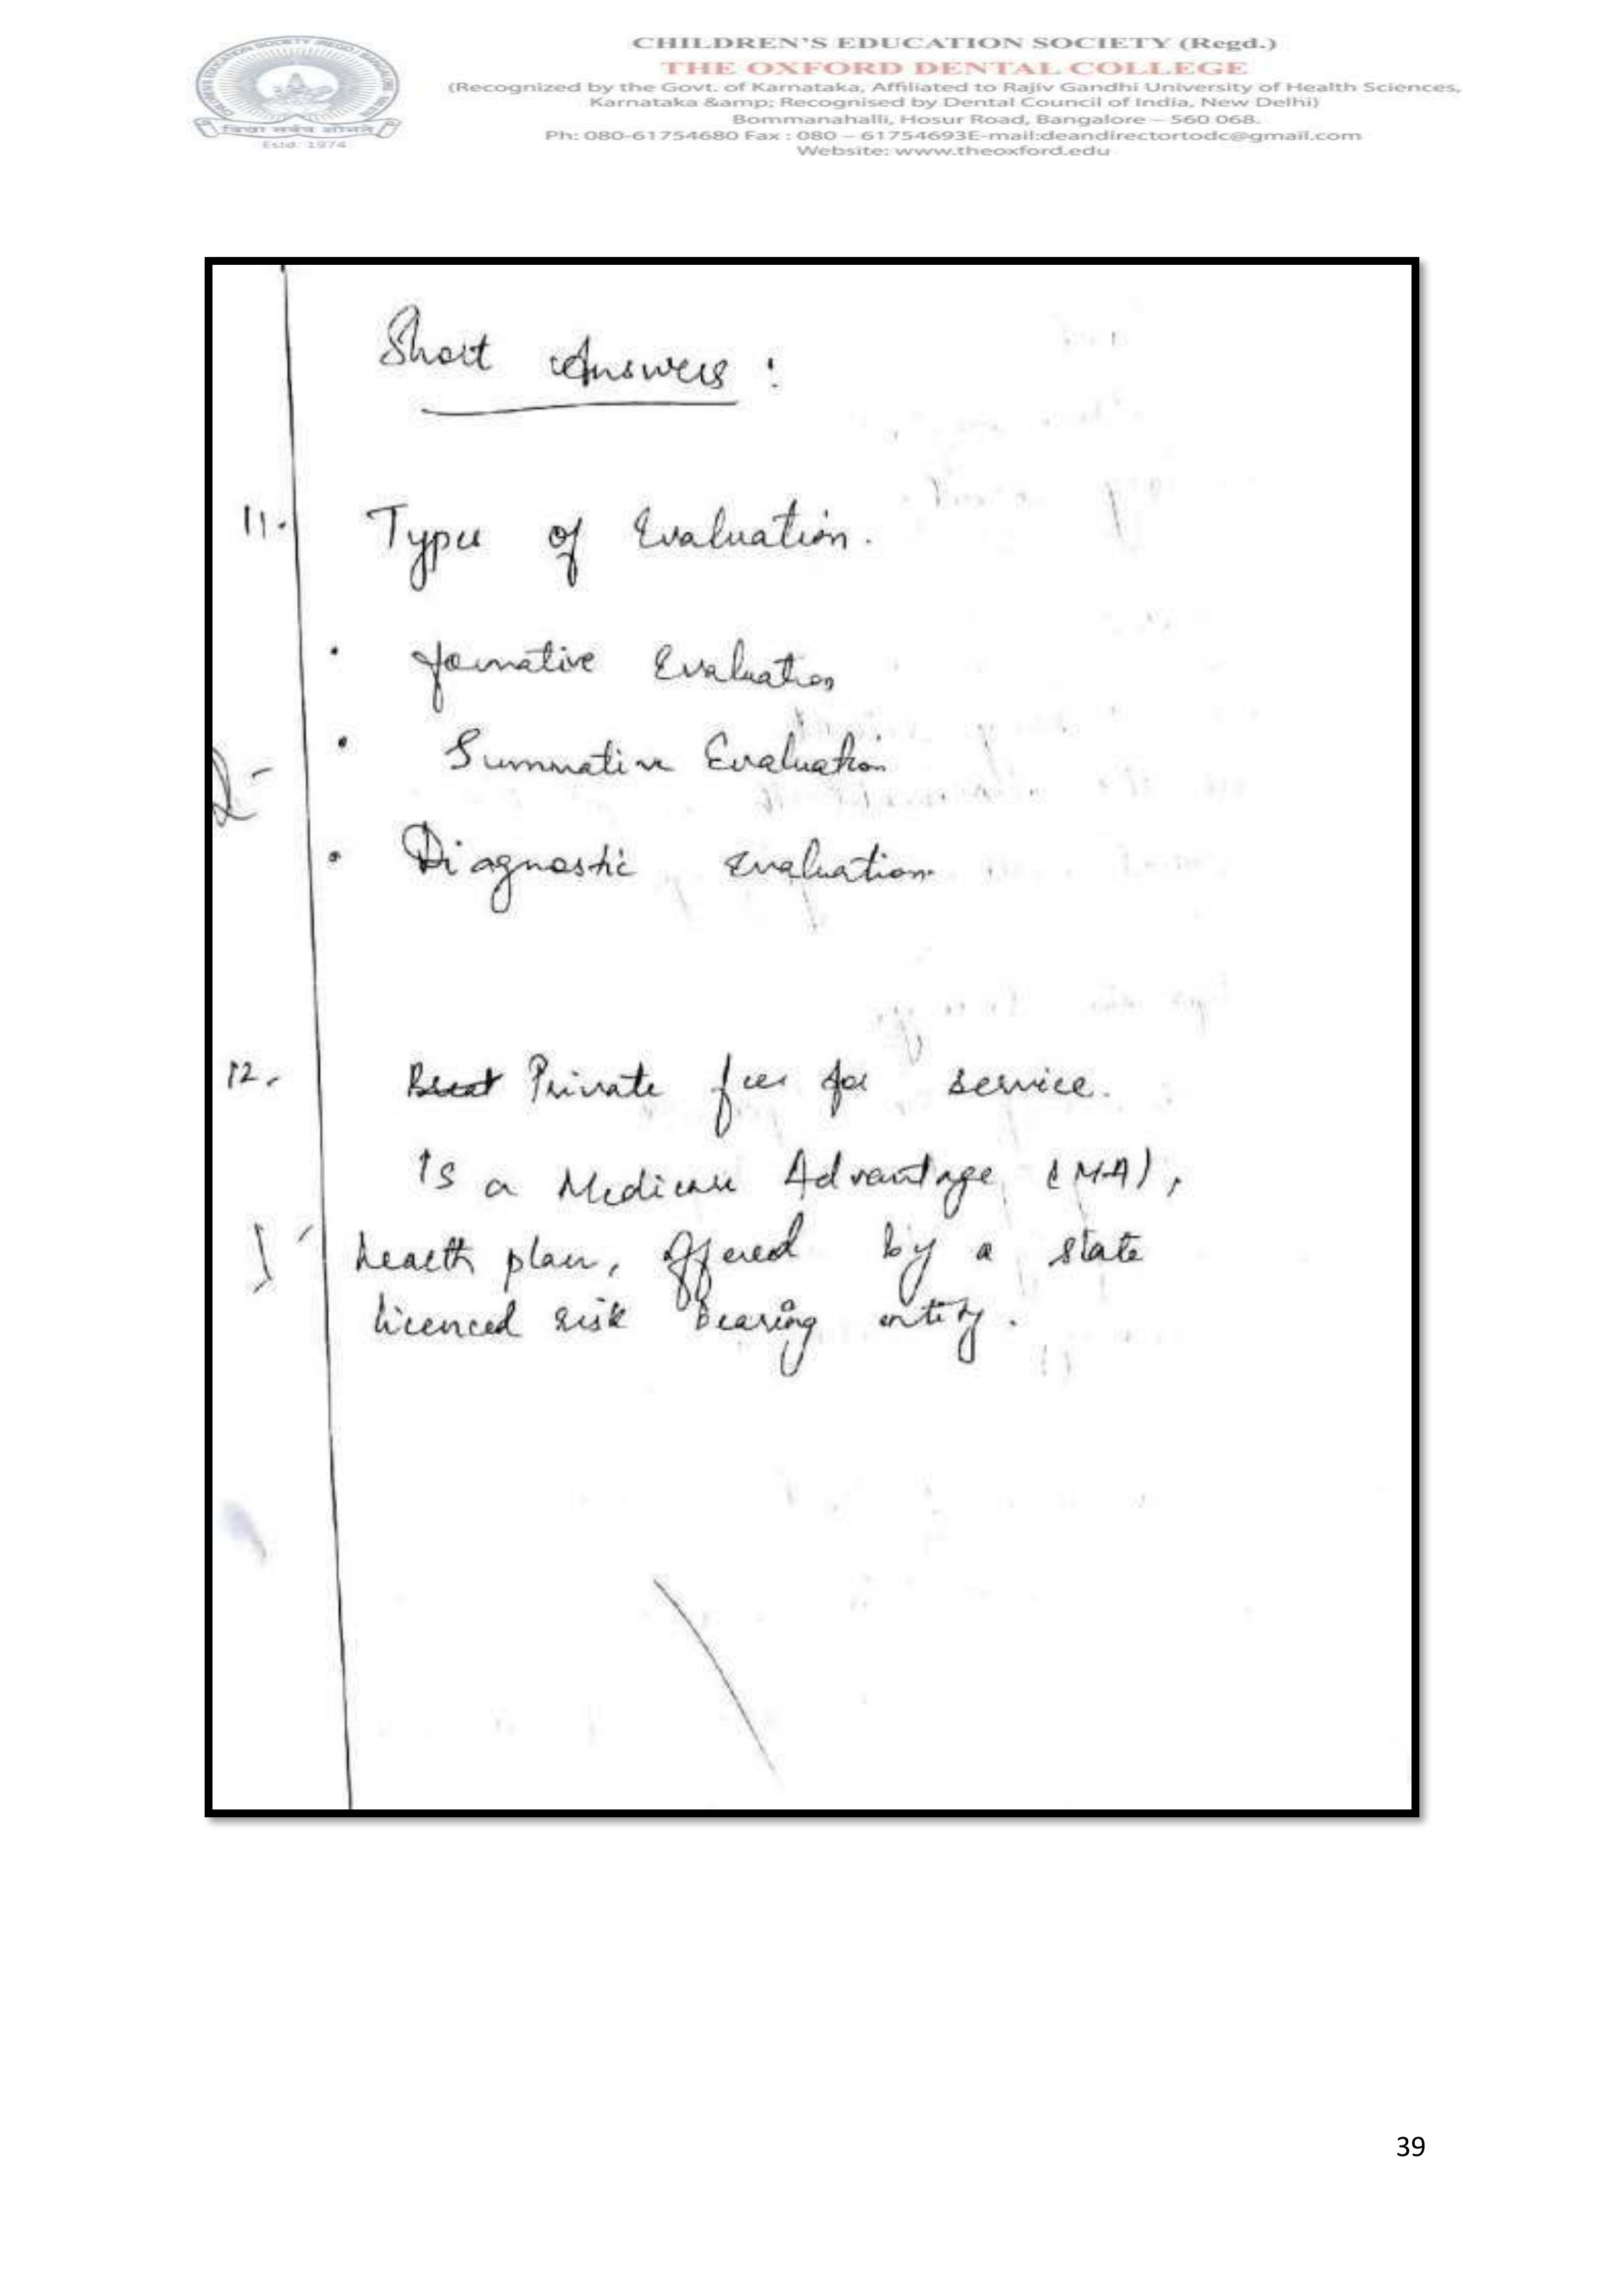 CHILDREN'S EDUCATION SOCIETY (Regd.)
THE OXFORD DENTAL COLLEGE
(Recognized by the Govt. of Karnataka, Affiliated to Rajiv Gandhi University of Health Sciences,
Karnataka &amp; Recognised by Dental Council of India, New Delhi)
Bommanahalli, Hosur Road, Bangalore – 560 068.
Ph: 080-61754680 Fax : 080 – 61754693E-mail:deandirectortodc@gmail.com
Website: www.theoxford.edu
Estd. 1974
Short Answers :
11. Types of Evaluation.
• formative Evaluation
• Summative Evaluation
• Diagnostic evaluation
12. Private fees for service.
Is a Medicare Advantage (MA),
health plan, offered by a state
licenced risk bearing entity.
39